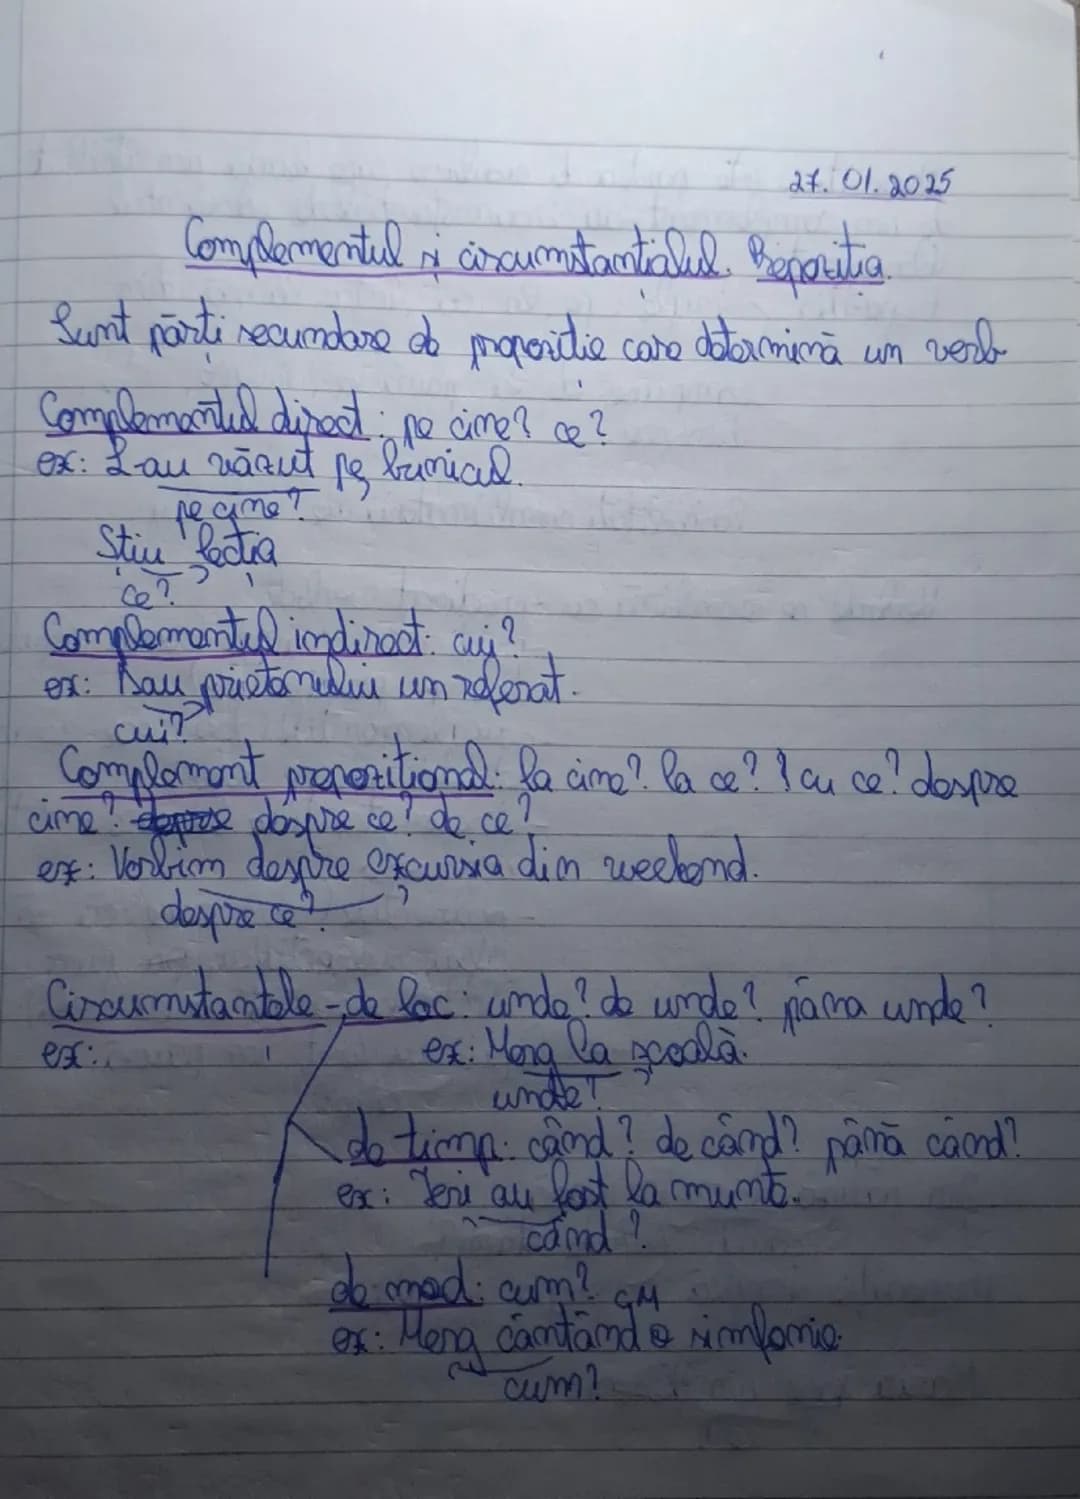 27.01.2025
Complementul și circumstanțialul. Prepoziția.
Sunt părți secundare de propoziție care determină un verb
Complementul direct: pe cine? ce?
ex: L-au văzut pe bunicul.
pe cine?
Știu lecția
ce?
Complementul indirect: cui?
ex: Dau prietenului un referat.
cui?
Complement prepozițional: la cine? la ce? cu ce? despre
cine? despre ce? de ce?
ex: Vorbim despre excursia din weekend.
despre ce?
Circumstanțele - de loc: unde? de unde? până unde?
ex:
ex: Merg la școală.
unde?
de timp: când? de când? până când?
ex: Ieri au fost la munte.
când?
de mod: cum? GM
ex: Merg cântând o simfonie.
cum?